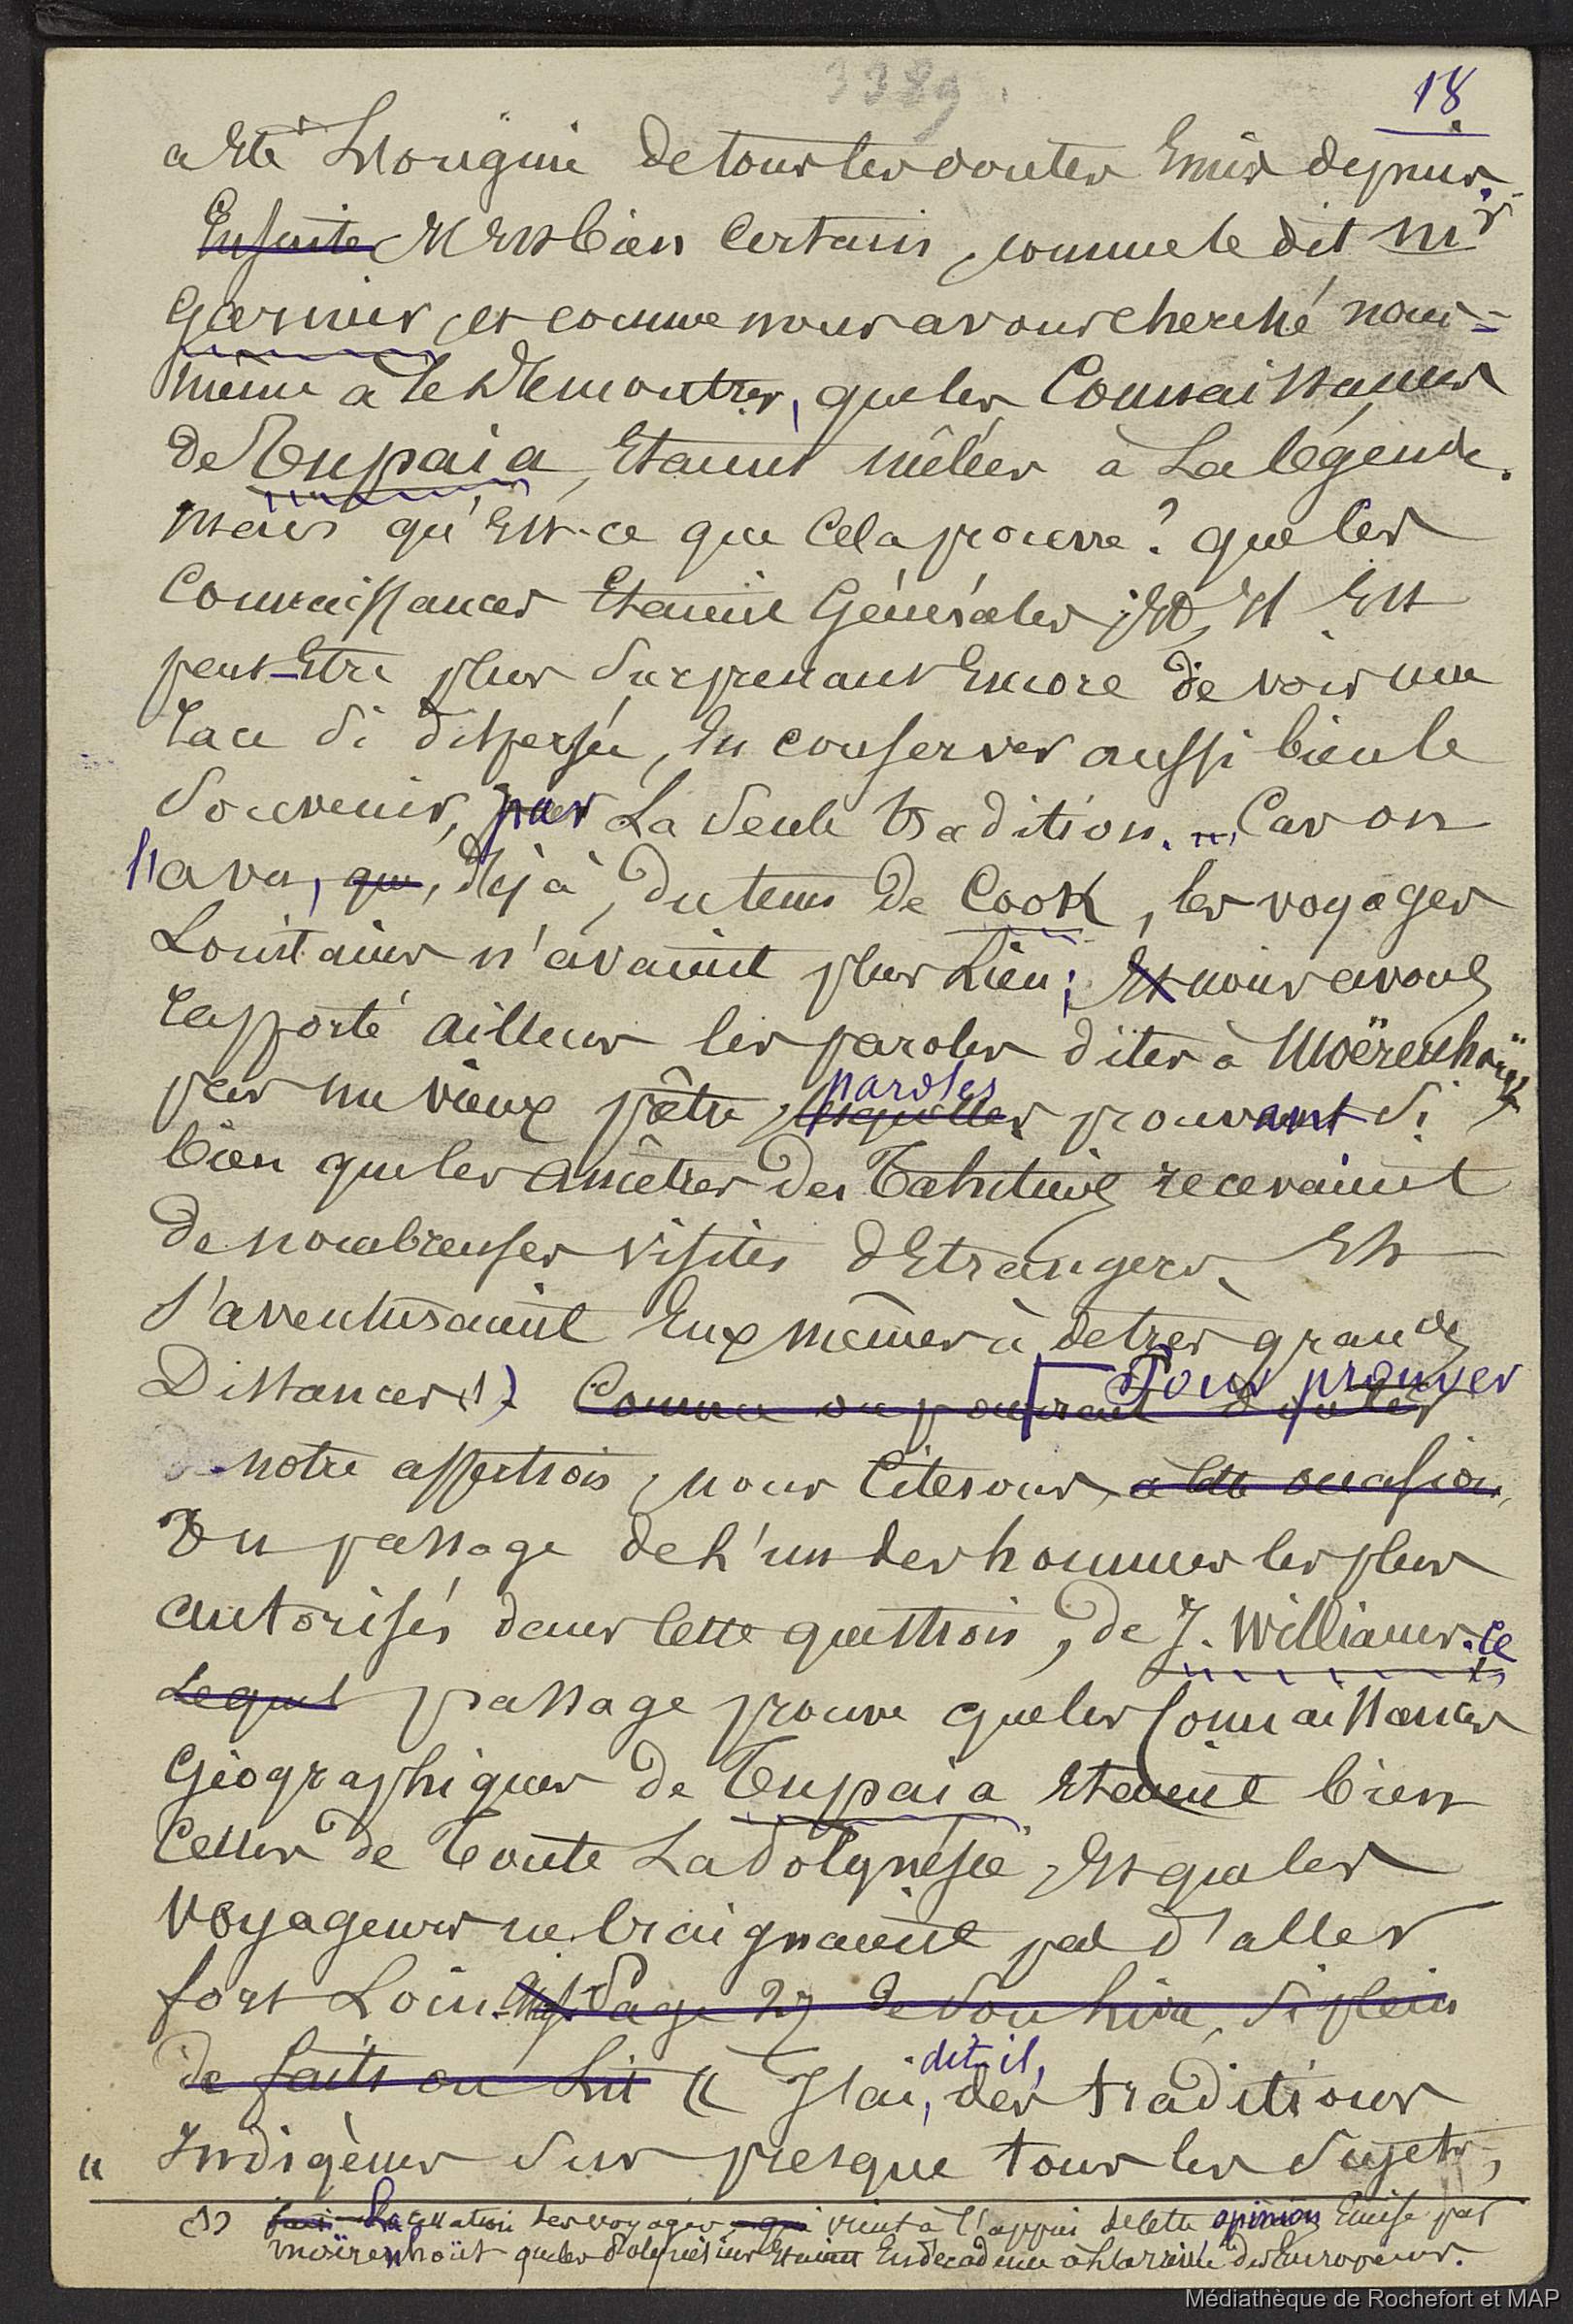 3389
18
a été L'origine de tous les doutes Emis depuis.
Ensuite Il Est bien Certain, comme le dit Mr
Garnier, et comme nous avons cherché nous=
même à le démontrer, que les Connaissances
de Tupaia, Etaient mêlées à La légende.
Mais qu'Est-ce que Cela prouve? que les
Connaissances Etaient Générales; Et, Il Est
peut-Etre plus Surprenant Encore de voir une
race Si dispersée, En conserver aussi bien le
Souvenir, par La Seule tradition. Car on
l'a vu, que, déjà, du tems de Cook, les voyages
Lointains n'avaient plus Lieu; Et nous avons
rapporté ailleurs les paroles dites à Moërenhoüt
par un vieux pêtre, lesquelles paroles prouvant Si
bien que les Ancêtres des Tahitiens recevaient
de nombreuses visites d'Etrangers. Et
S'aventuraient Eux mêmes à de très grandes
Distances (1). Comme on pourrait douter Pour prouver
de notre assertion, nous Citerons, à cette occasion,
Un passage de L'un des hommes les plus
autorisés dans Cette question, de J. Williams. Ce
Lequel passage prouve que les Connaissances
Géographiques de Tupaia Etaient bien
Celles de Toute La Polynésie, Et que les
Voyageurs ne Craignaient pas d'aller
fort Loin. Page 27 de Son livre, Si plein
de faits on Lit « J'ai, dit-il, des traditions
« Indigènes Sur presque tous les Sujets,
(1) La Cessation des voyages, qui vient à l'appui de Cette opinion Emise par
Moërenhoüt que les Polynésiens Etaient En décadence à L'arrivée des Européens.
Médiathèque de Rochefort et MAP